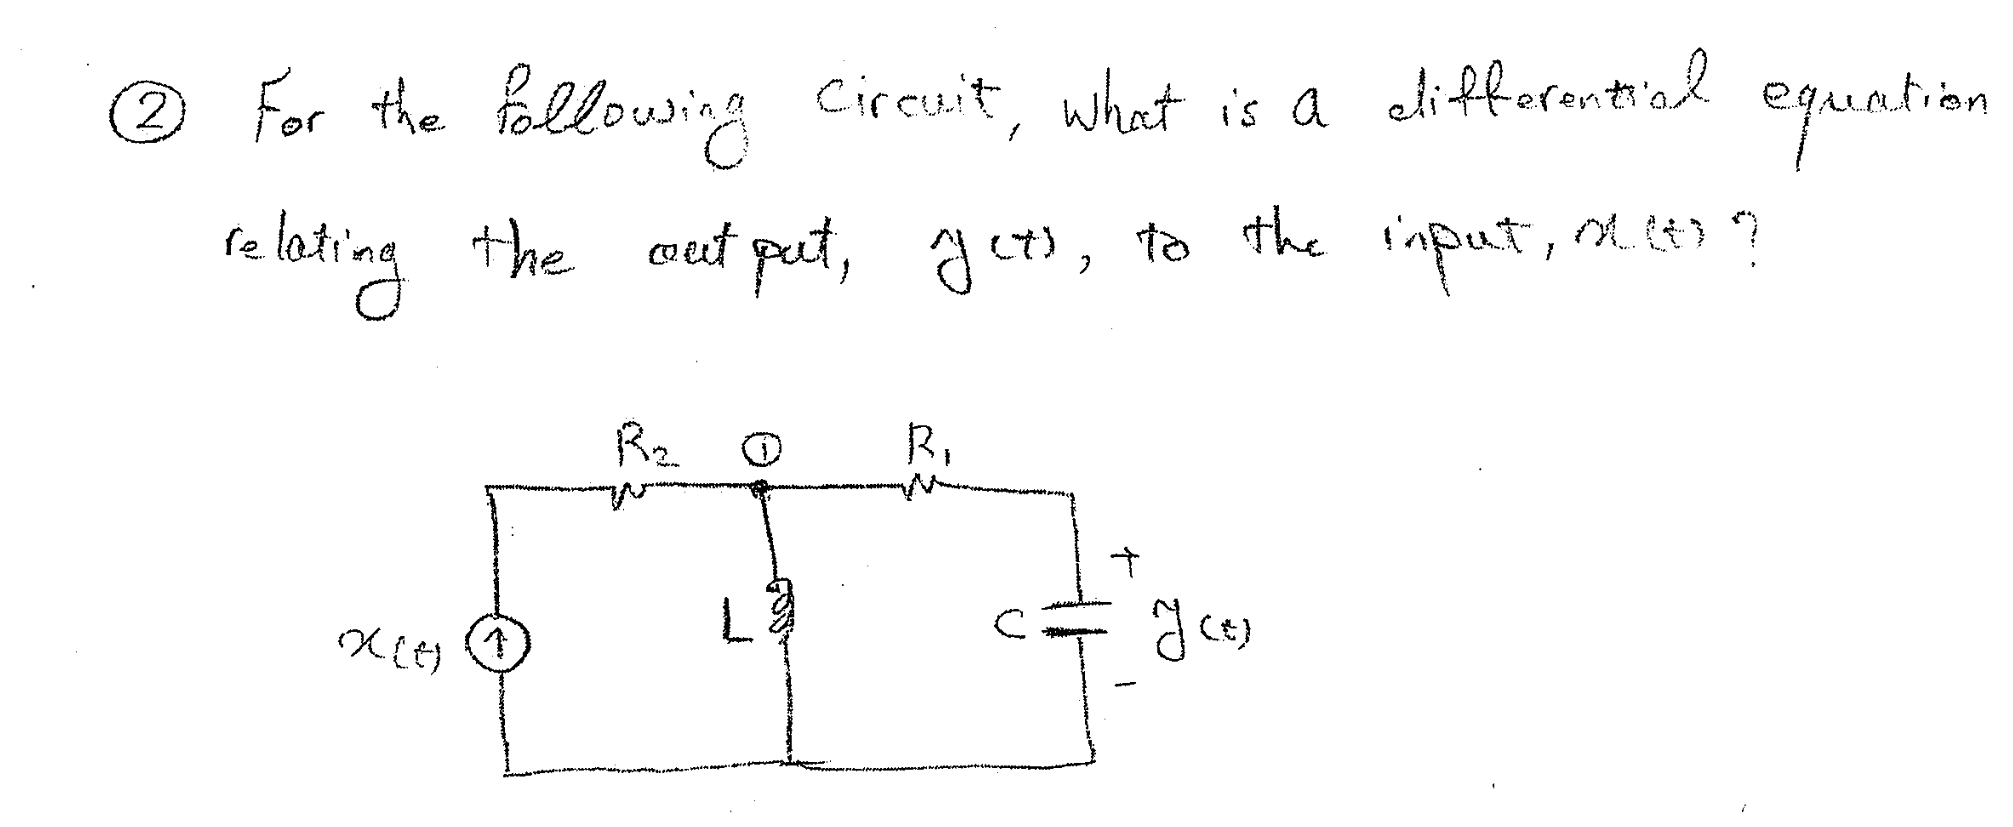 ② For the following circuit, what is a differential equation
relating the output, y(t), to the input, x(t)?
R₂ ① R₁
+
x(t) L C y(t)
-